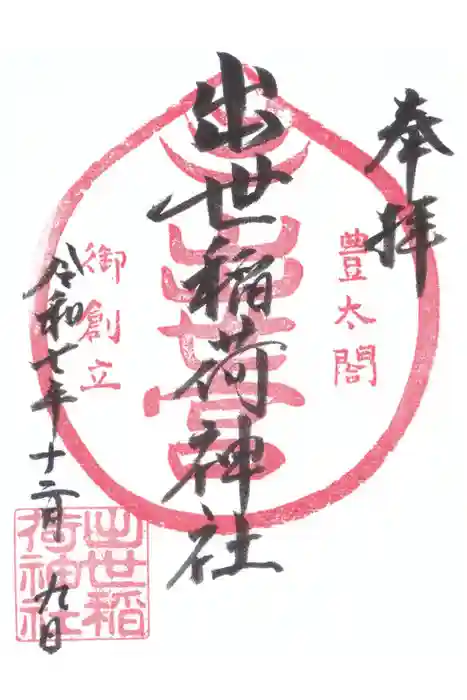 奉拝
豊太閤
出世稲荷神社
出世宮
御創立
令和七年十二月九日
出世稲
荷神社